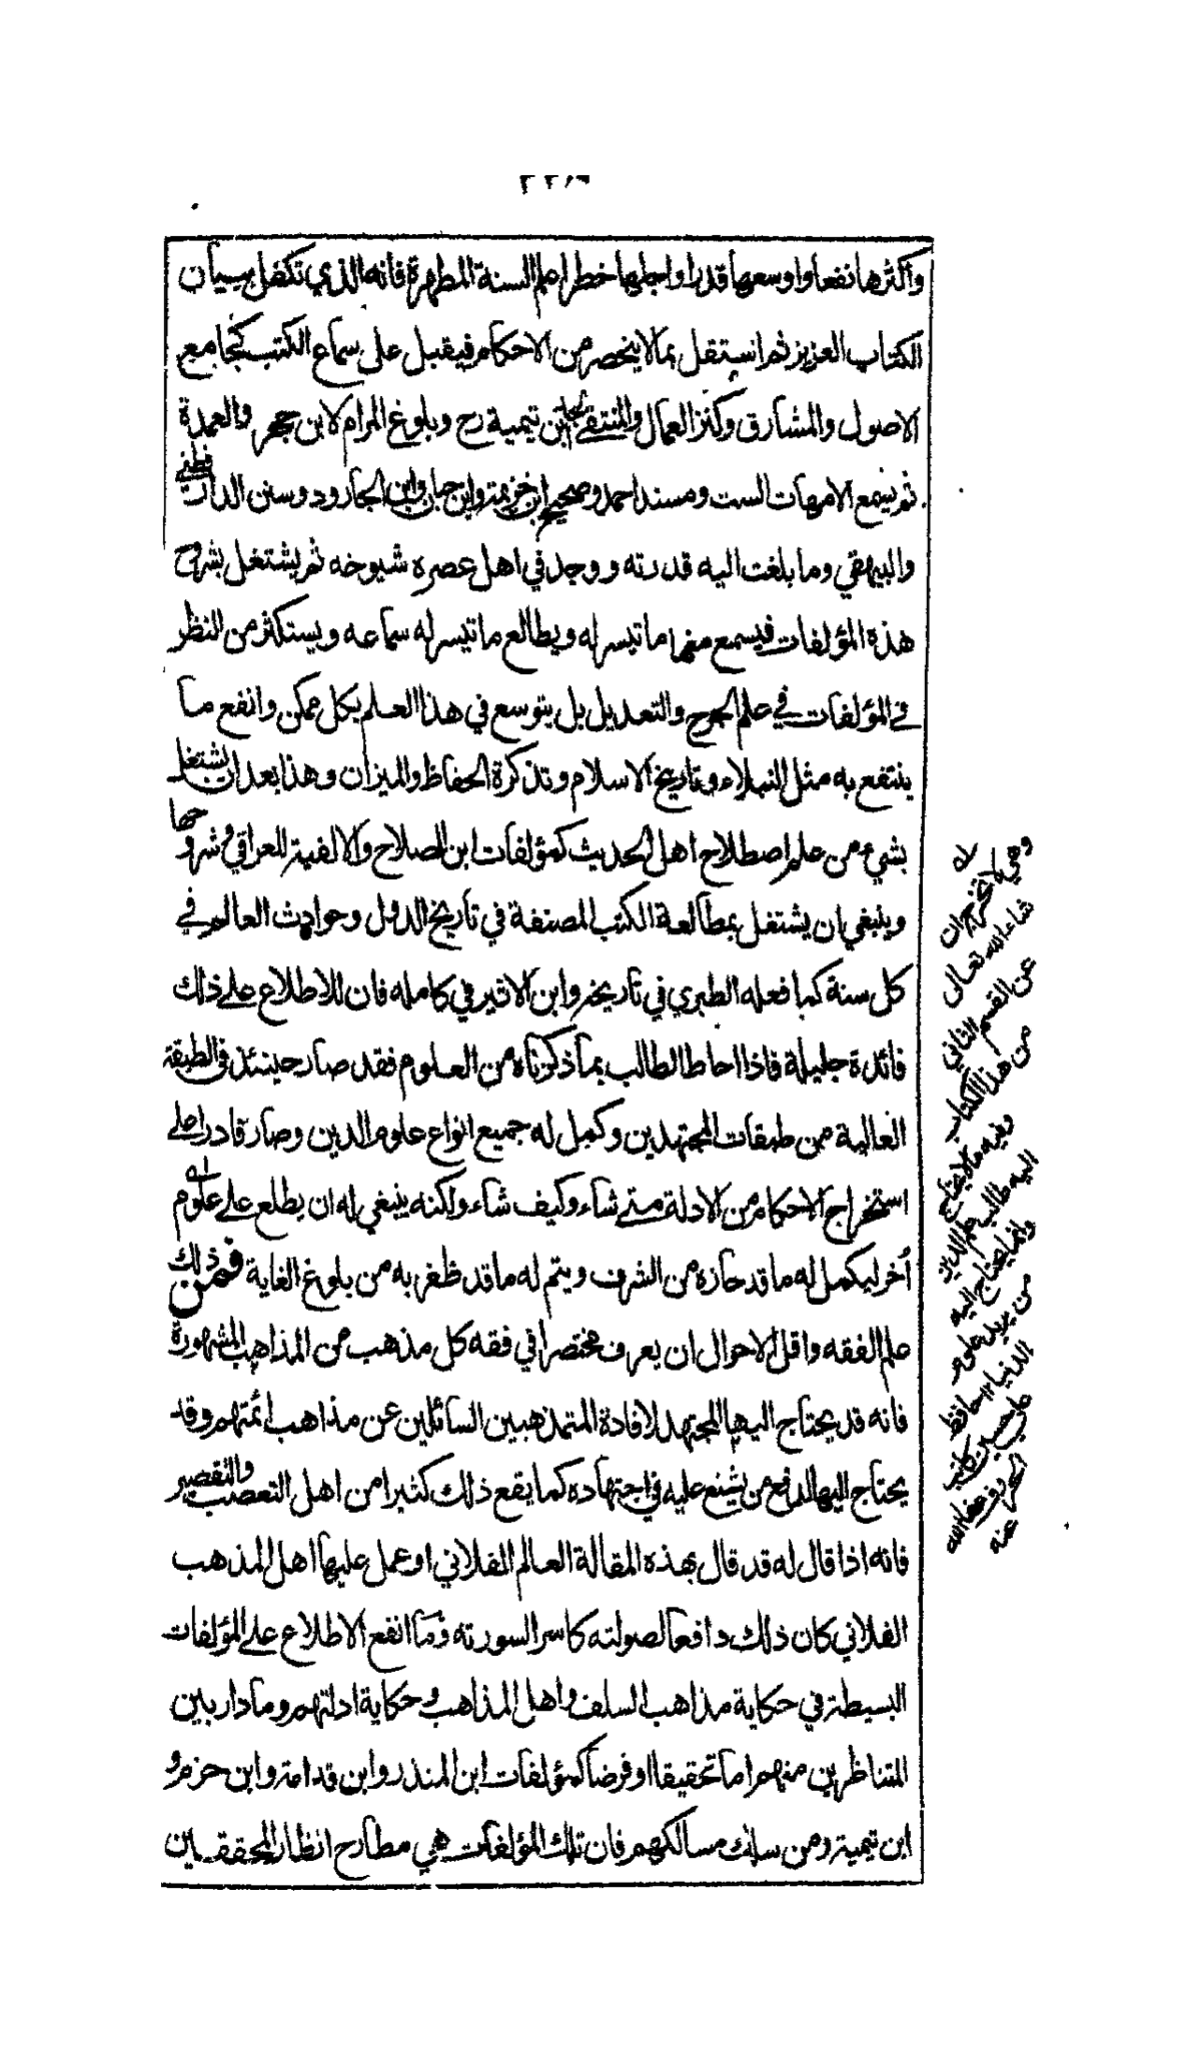 واكثرها نفعا واوسعها قدرا واجلها خطرا علم السنة المطهرة فانه الذي تكفل ببيان
الكتاب العزيز ثم استقل بما لا ينحصر من الاحكام فيقبل على سماع الكتب كجامع
الاصول والمشارق وكنز العمال والمنتقى لابن تيمية رح وبلوغ المرام لابن حجر والعمدة
ثم يسمع الامهات الست ومسند احمد وصحيح ابن خزيمة وابن حبان وابن الجارود وسنن الدارقطني
والبيهقي وما بلغت اليه قدرته ووجد في اهل عصره شيوخه ثم يشتغل بشروح
هذه المؤلفات فيسمع منها ما تيسر له ويطالع ما تيسر له سماعه ويستكثر من النظر
في المؤلفات في علم الجرح والتعديل بل يتوسع في هذا العلم بكل ممكن وانفع ما
ينتفع به مثل النبلاء وتاريخ الاسلام وتذكرة الحفاظ والميزان وهذا بعد ان يشتغل
بشيء من علم اصطلاح اهل الحديث كمؤلفات ابن الصلاح والالفية للعراقي وشروحها
وينبغي ان يشتغل بمطالعة الكتب المصنفة في تاريخ الدول وحوادث العالم في
كل سنة كما فعله الطبري في تاريخه وابن الاثير في كامله فان للاطلاع على ذلك
فائدة جليلة فاذا احاط الطالب بما ذكرناه من العلوم فقد صار حينئذ في الطبقة
العالية من طبقات المجتهدين وكمل له جميع انواع علوم الدين وصار قادرا على
استخراج الاحكام من الادلة متى شاء وكيف شاء ولكنه ينبغي له ان يطلع على علوم
أخر ليكمل له ما قد حازه من الشرف ويتم له ما قد ظفر به من بلوغ الغاية فمن ذلك
علم الفقه واقل الاحوال ان يعرف مختصرا في فقه كل مذهب من المذاهب المشهورة
فانه قد يحتاج اليها المجتهد لافادة المتمذهبين السائلين عن مذاهب ائمتهم وقد
يحتاج اليها لدفع من يشنع عليه في اجتهاده كما يقع ذلك كثيرا من اهل التعصب والتقصير
فانه اذا قال له قد قال بهذه المقالة العالم الفلاني او عمل عليها اهل المذهب
الفلاني كان ذلك دافعا لصولته كاسرا لسورته وما انفع الاطلاع على المؤلفات
البسيطة في حكاية مذاهب السلف واهل المذاهب وحكاية ادلتهم وما دار بين
المتناظرين منهم اما تحقيقا او فرضا كمؤلفات ابن المنذر وابن قدامة وابن حزم و
ابن تيمية ومن سلك مسالكهم فان تلك المؤلفات هي مطارح انظار المحققين
وهي لا تخرج ان
شاء الله تعالى
عن القسم الثاني
من هذا الكتاب
وفيه ما لا يحتاج
اليه طالب علم الدين
وانما يحتاج اليه
من يريد علوم
الدنيا الحافظ
علي حسين كاتب
الحروف عفا الله
عنه